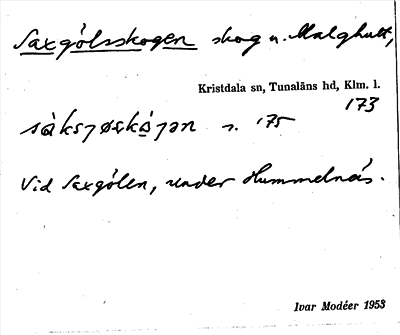 Saxgölsskogen skog n. Malghult,
Kristdala sn, Tunaläns hd, Klm. l.
173
s. 175
Vid Saxgölen, under Hummelnäs.
Ivar Modéer 1953